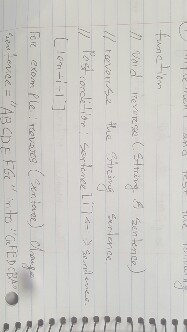 function
// Void reverse (string & sentence)
// reverse the string sentence
// Postcondition: sentence [i] <-> sentence
[len-i-1]
For example: reverse (sentence) change
sentence = "ABCDEFG" into "GFEDCBA"